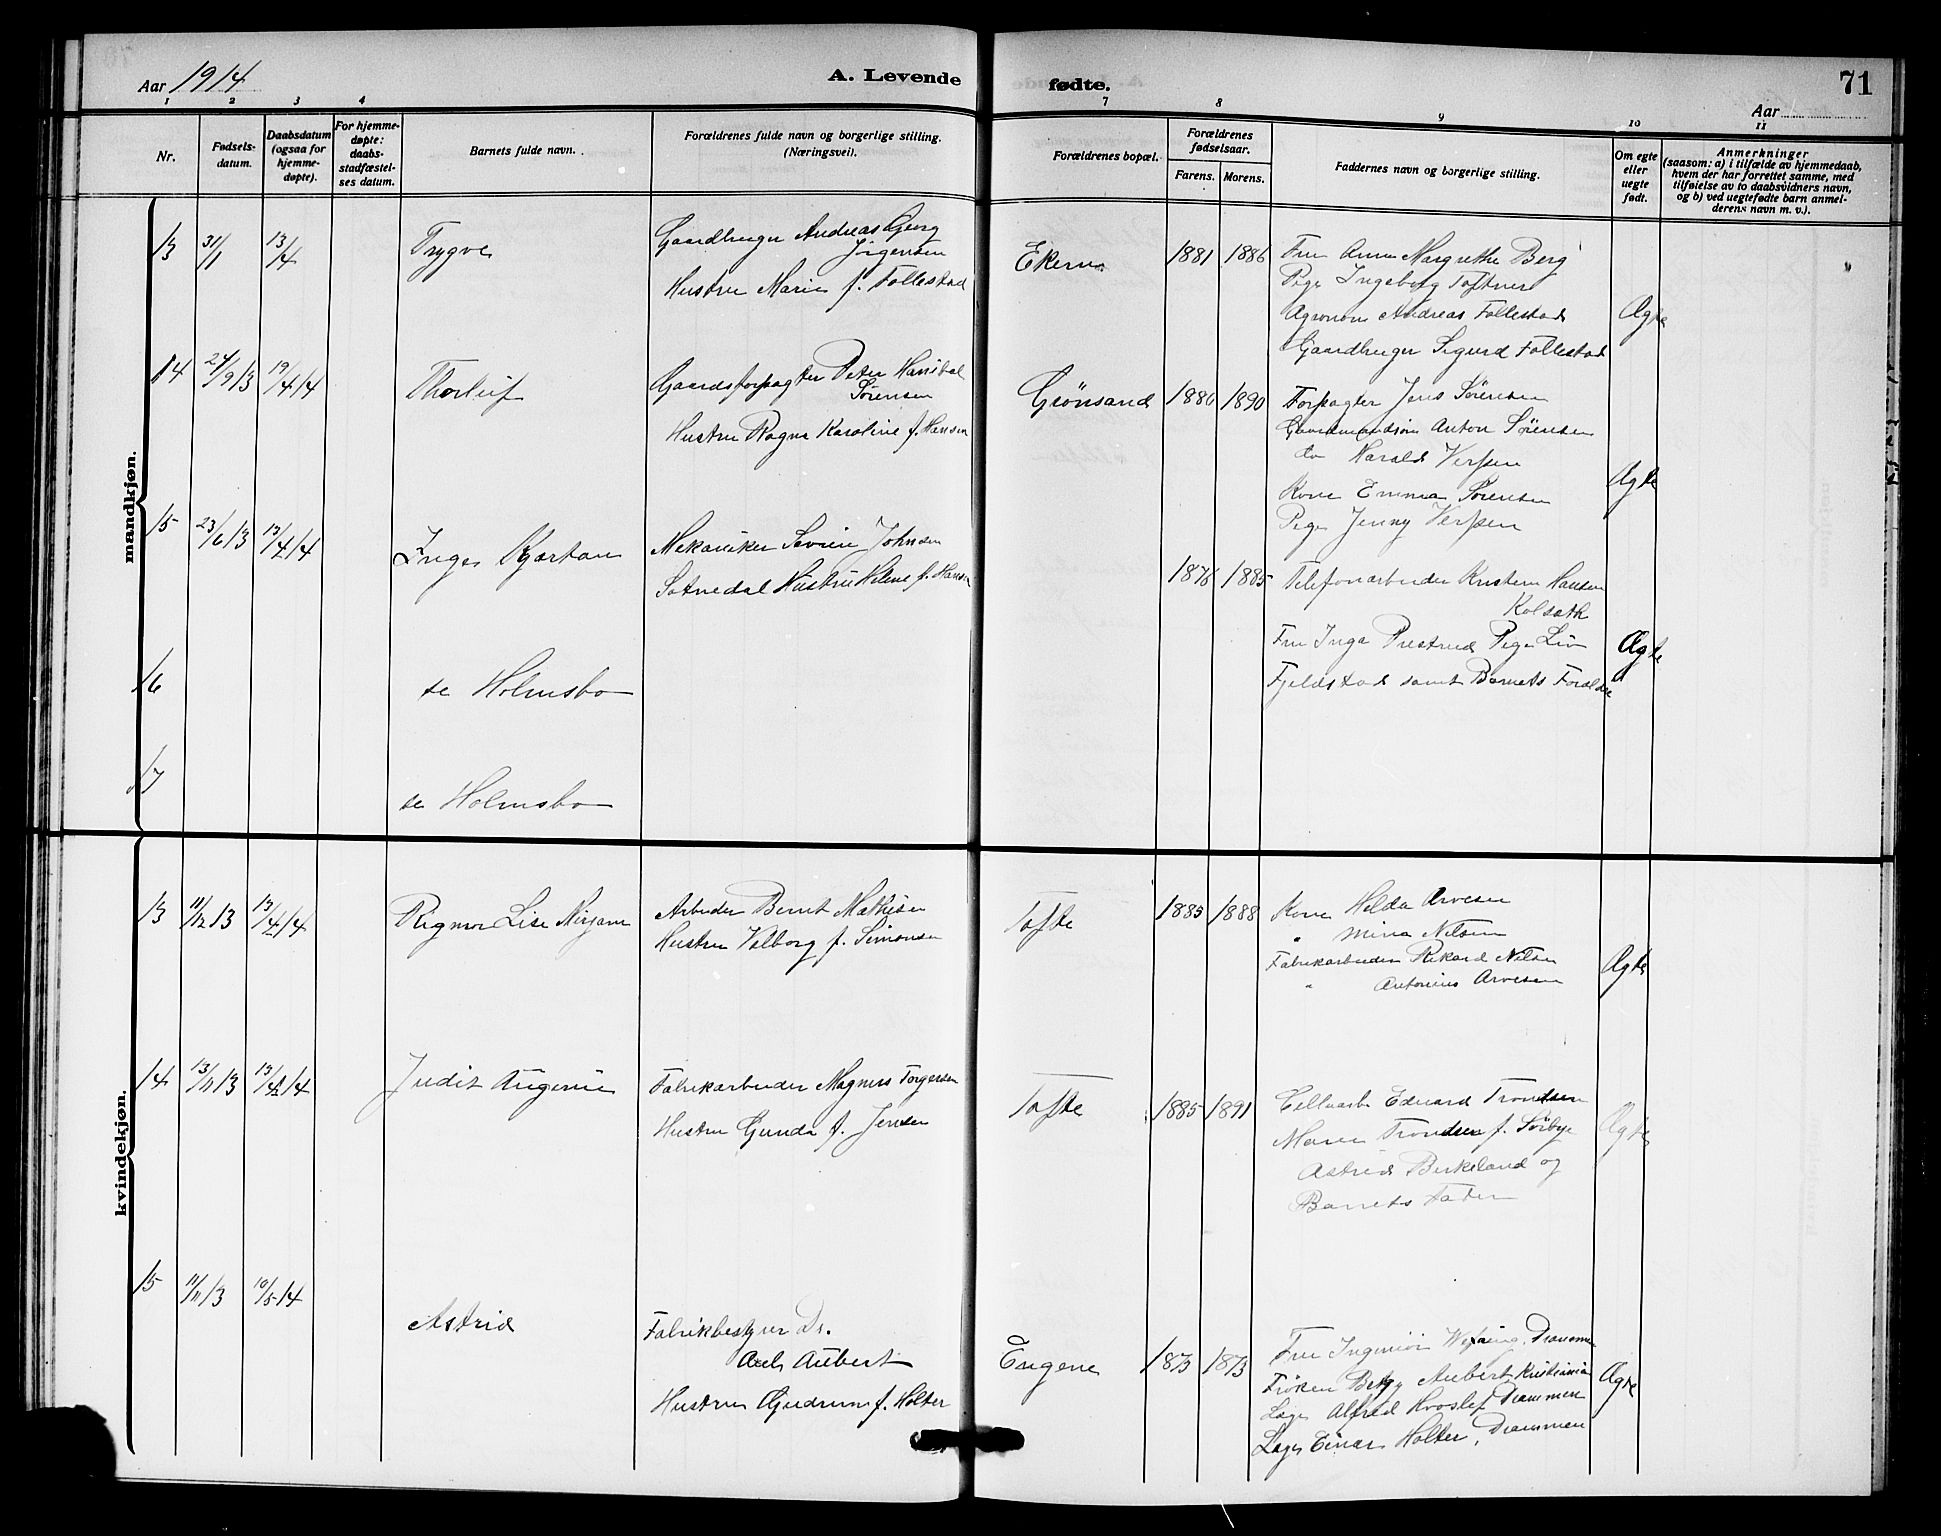 Aar 1914
A. Levende
fødte.
71
Aar
1 2 3 4 7 8 9 10 11
Nr.
Fødsels-
datum.
Daabsdatum
(ogsaa for
hjemme-
døpte).
For hjemme-
døpte:
daabs-
stadfæstel-
ses datum.
Barnets fulde navn.
Forældrenes fulde navn og borgerlige stilling.
(Næringsvei).
Forældrenes bopæl.
Forældrenes
fødselsaar.
Farens. Morens.
Faddernes navn og borgerlige stilling.
Om egte
eller
uegte
født.
Anmerkninger
(saasom: a) i tilfælde av hjemmedaab,
hvem der har forrettet samme, med
tilføielse av to daabsvidners navn,
og b) ved uegtefødte barn anmel-
derens navn m. v.).
mandkjøn.
13 31/1 13/4 Trygve
Gaardbruger Andreas Georg
Jörgensen
Hustru Marie f. Follestad
Ekern 1881 1886
Fru Anna Margrethe Berg
Pige Ingeborg Toftner
Agronom Andreas Follestad
Gaardbruger Sigurd Follestad
Ægte
14 24/9 13 19/4 14 Thorleif
Gaardsforpagter Peter Hanibal
Sörensen
Hustru Ragna Karoline f. Hansen
Grönsand 1886 1890
Forpagter Jens Sörensen
Gaardmandssön Anton Sörensen
do Harald
Kone Emma Sörensen
Pige Jenny
Ægte
15 23/6 13 13/4 14 Inge Kjartan
Mekaniker Severin Johnsen
Sotnedal Hustru Helene f. Hansen
1876 1885
Telefonarbeider Kristen Hansen
Kolsath
Fru Inga Prestrud Pige Liv
Fjeldstad samt Barnets Forældre
Ægte
16 se Holmsbo
17 se Holmsbo
kvindekjøn.
13 11/12 13 13/4 14 Rigmor Lise Mirjam
Arbeider Bernt Mathisen
Hustru Valborg f. Simonsen
Tofte 1885 1888
Kone Helda Arvesen
" Mina Nilsen
Fabrikarbeider Rikard Nilsen
" Antonius Arvesen
Ægte
14 13/11 13 13/4 14 Judit Augenie
Fabrikarbeider Magnus Torgersen
Hustru Gunda f. Jensen
Tofte 1885 1891
Cellularb Edvard Trondsen
Maren Trondsen f. Sörbye
Astrid Birkeland og
Barnets Fader
Ægte
15 11/11 13 10/5 14
Astrid
Fabrikbestyrer Dr.
Axel Aubert
Hustru Gudrun f. Holter
Engene 1873 1873
Fru Ingeniör Wefring, Drammen
Fröken Betzy Aubert Kristiania
Læge Alfred Hvoslef Drammen
Læge Einar Holter, Drammen
Ægte